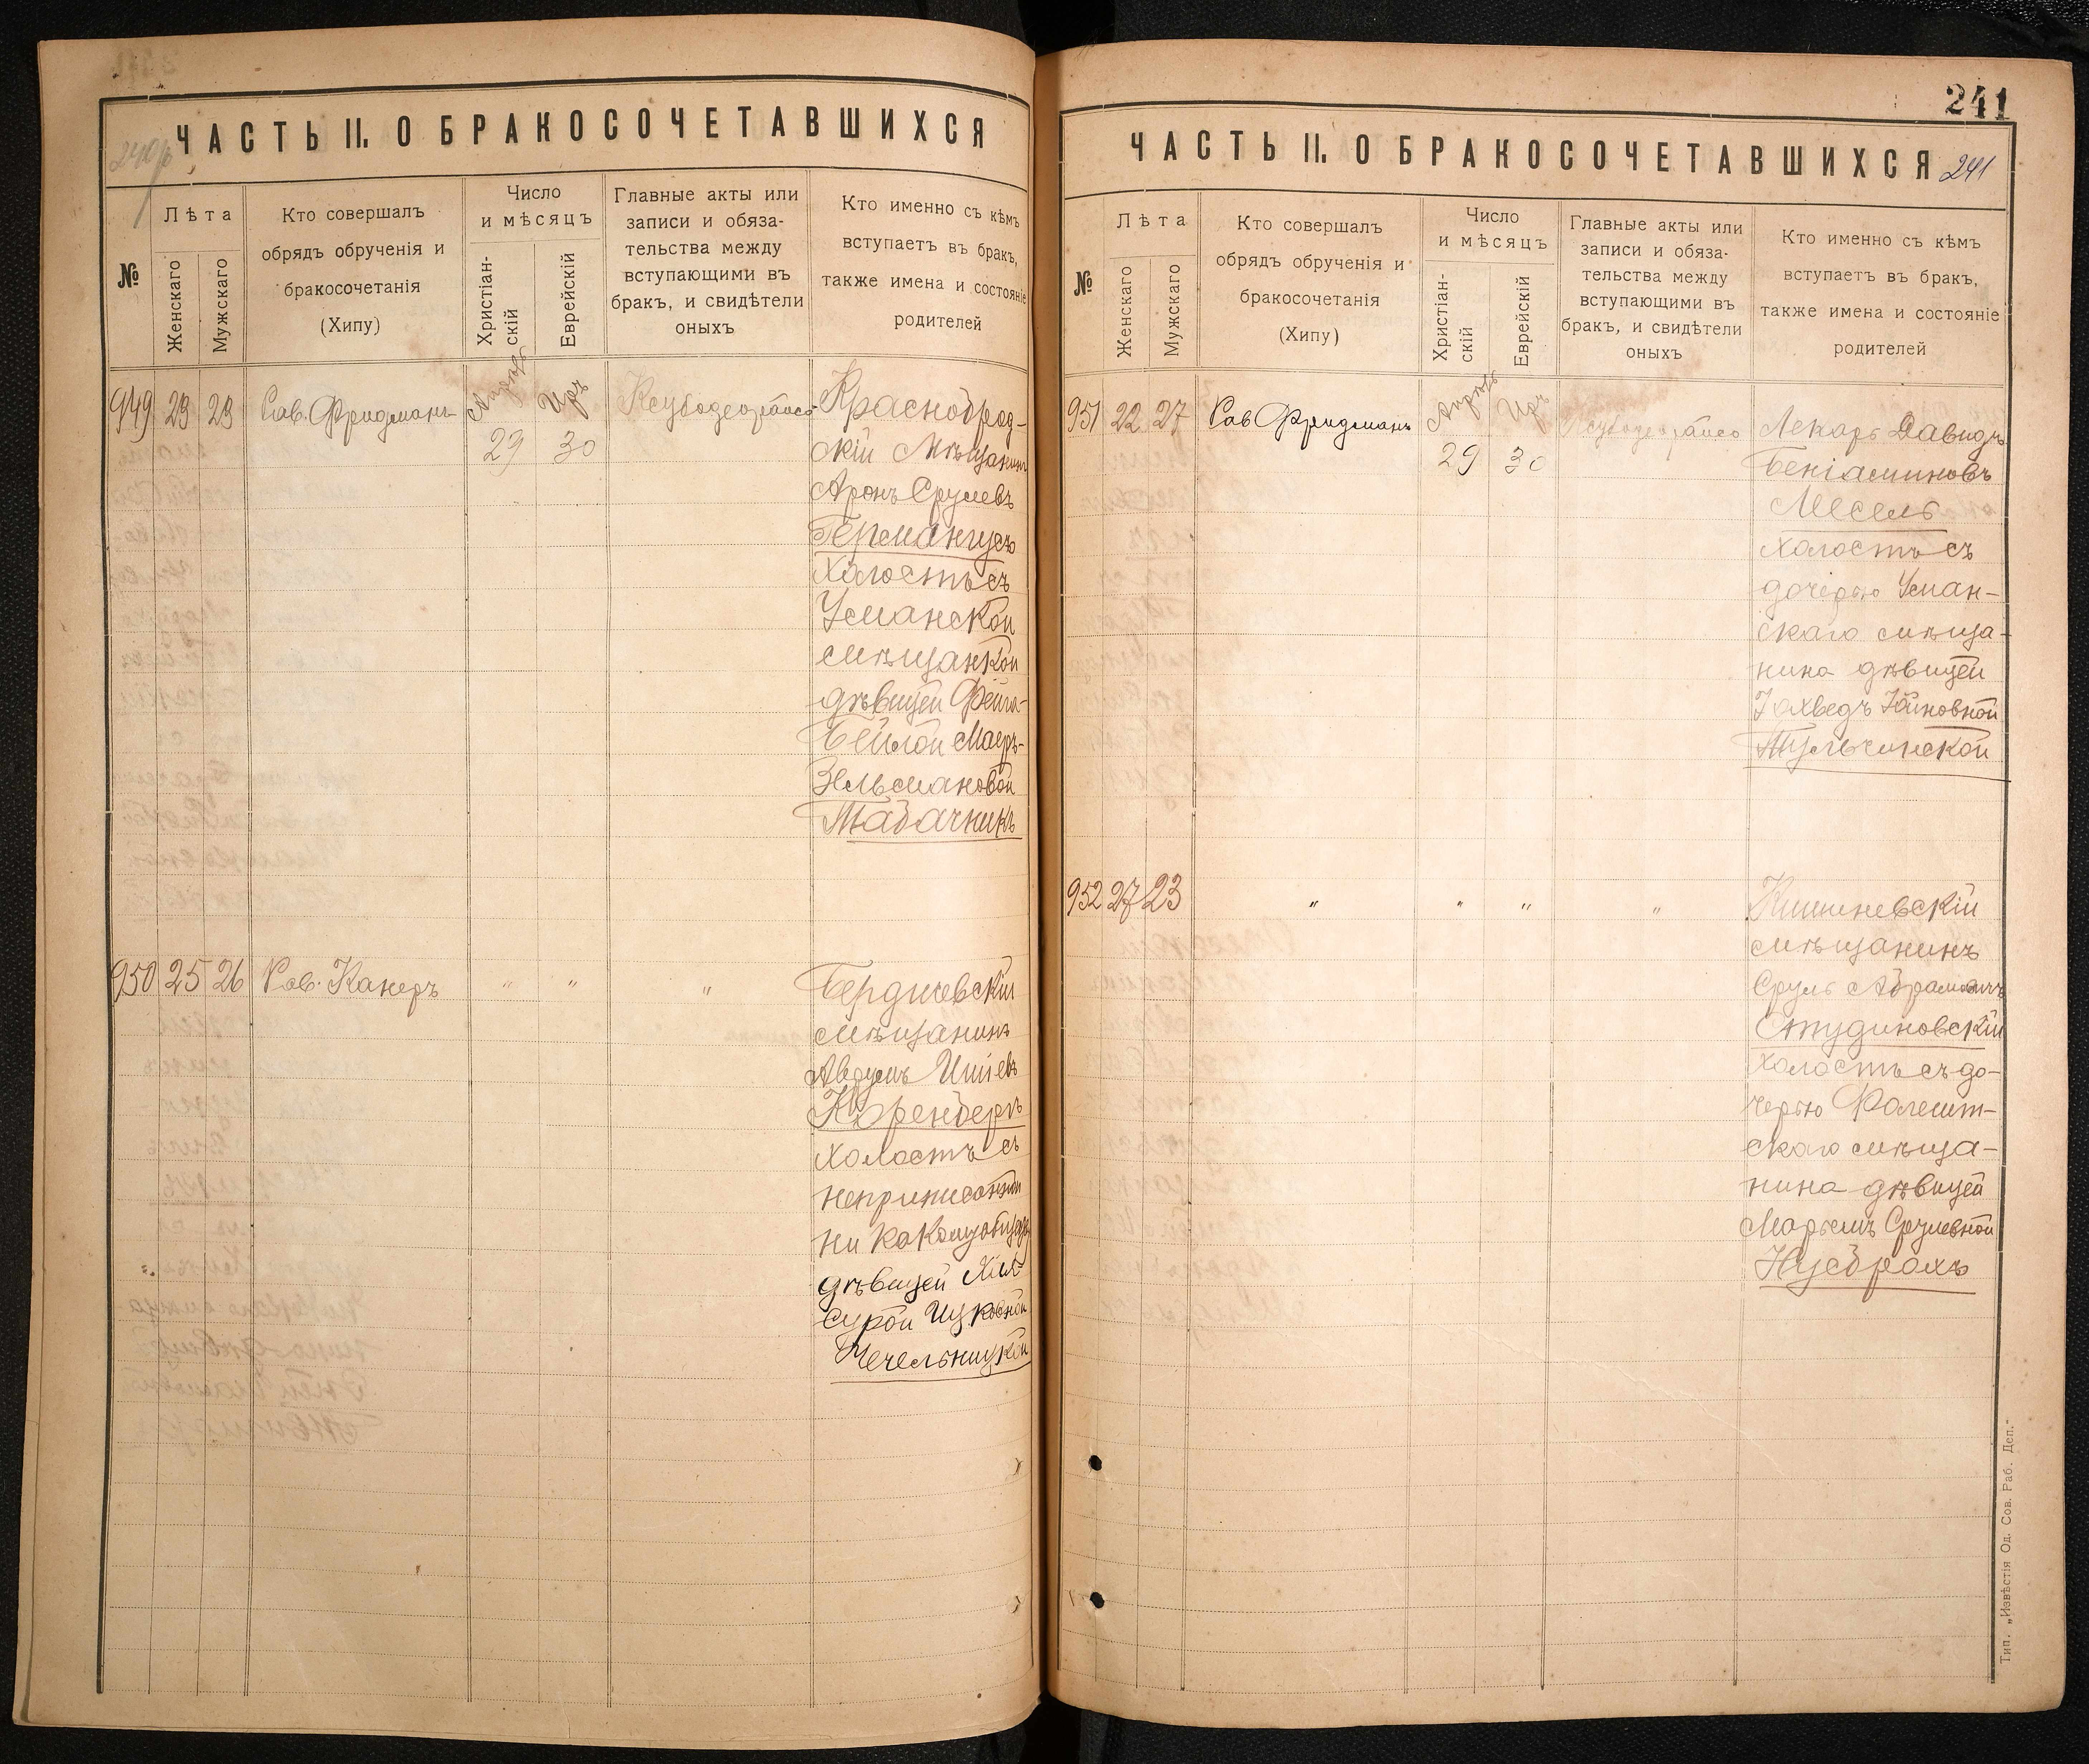 ЧАСТЬ II. О БРАКОСОЧЕТАВШИХСЯ
№
Лѣта
Женскаго
Мужскаго
Кто совершалъ
обрядъ обрученія и
бракосочетанія
(Хипу)
Число
и мѣсяцъ
Христіан-
скій
Еврейскій
Главные акты или
записи и обяза-
тельства между
вступающими въ
бракъ, и свидѣтели
оныхъ
Кто именно съ кѣмъ
вступаетъ въ бракъ,
также имена и состояніе
родителей
949 23 23 Рав. Фридманъ
29 30
Красноброд-
скій Мѣщанинъ
Аронъ Срулевъ
Холостъ съ
Усманской
мѣщанкой
дѣвицей Фейга-
Бейлой Маеръ-
Зельмановой
Табачникъ
950 25 26 Рав. Канеръ " " "
Бердичевскій
мѣщанинъ
холостъ съ
неприписанной
дѣвицей
Сурой Ицковной
Чечельницкой
241
ЧАСТЬ II. О БРАКОСОЧЕТАВШИХСЯ 241
№
Лѣта
Женскаго
Мужскаго
Кто совершалъ
обрядъ обрученія и
бракосочетанія
(Хипу)
Число
и мѣсяцъ
Христіан-
скій
Еврейскій
Главные акты или
записи и обяза-
тельства между
вступающими въ
бракъ, и свидѣтели
оныхъ
Кто именно съ кѣмъ
вступаетъ въ бракъ,
также имена и состояніе
родителей
951 22 27 Рав Фридманъ
29 30
Лекарь Давидъ
Беніаминовъ
Месель
холостъ съ
дочерью Уман-
скаго мѣща-
нина дѣвицей
Тульчинской
952 27 23 " " " "
Кишиневскій
мѣщанинъ
Сруль Абрамовичъ
Студиновскій
холостъ съ до-
черью Фалешт-
скаго мѣща-
нина дѣвицей
Марьямъ Срулевной
Нусбрахъ
Тип. „Извѣстія Од. Сов. Раб. Деп."